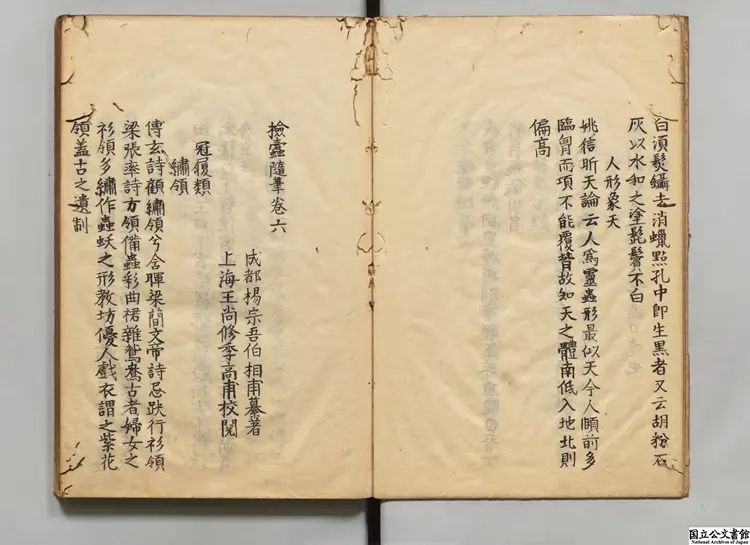 白須髮鑷去消蠟點孔中即生黑者又云胡粉石
灰以水和之塗髭鬢不白
人形象天
姚信昕天論云人爲靈蟲形最似天今人頤前多
臨胷而項不能覆背故知天之體南低入地北則
偏高
撿蠹隨筆卷六
成都楊宗吾伯相甫纂著
上海王尚修季高甫校閱
冠履類
繡領
傅玄詩顧繡領兮含暉梁簡文帝詩忌趺行衫領
梁張率詩方領備蟲彩曲裙雜鴛鴦古者婦女之
衫領多繡作蟲蚨之形教坊優人戲衣謂之紫花
領蓋古之遺制
国立公文書館
National Archives of Japan